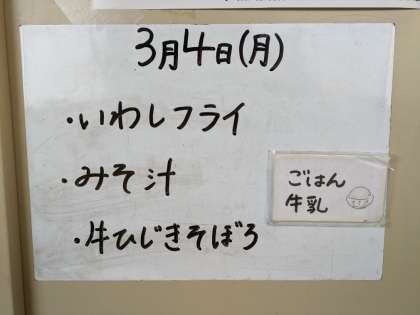 3月4日(月)
・いわしフライ
・みそ汁
・牛ひじきそぼろ
ごはん
牛乳